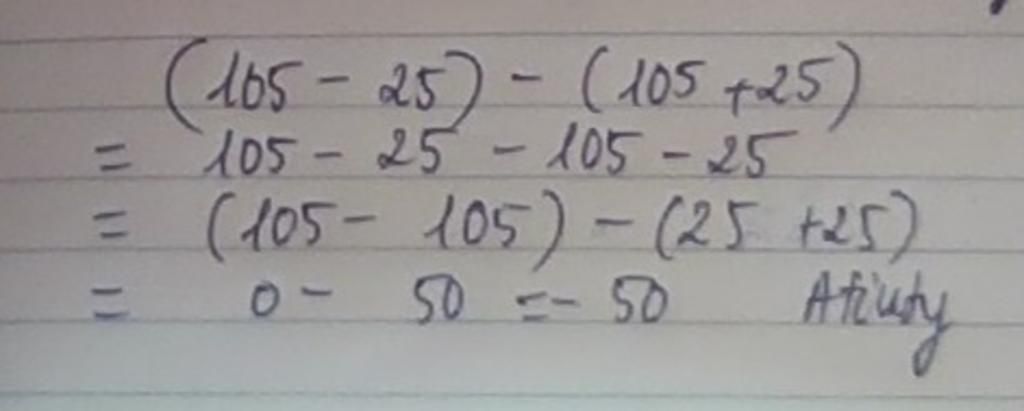 (105 - 25) - (105 + 25)
= 105 - 25 - 105 - 25
= (105 - 105) - (25 + 25)
= 0 - 50 = - 50